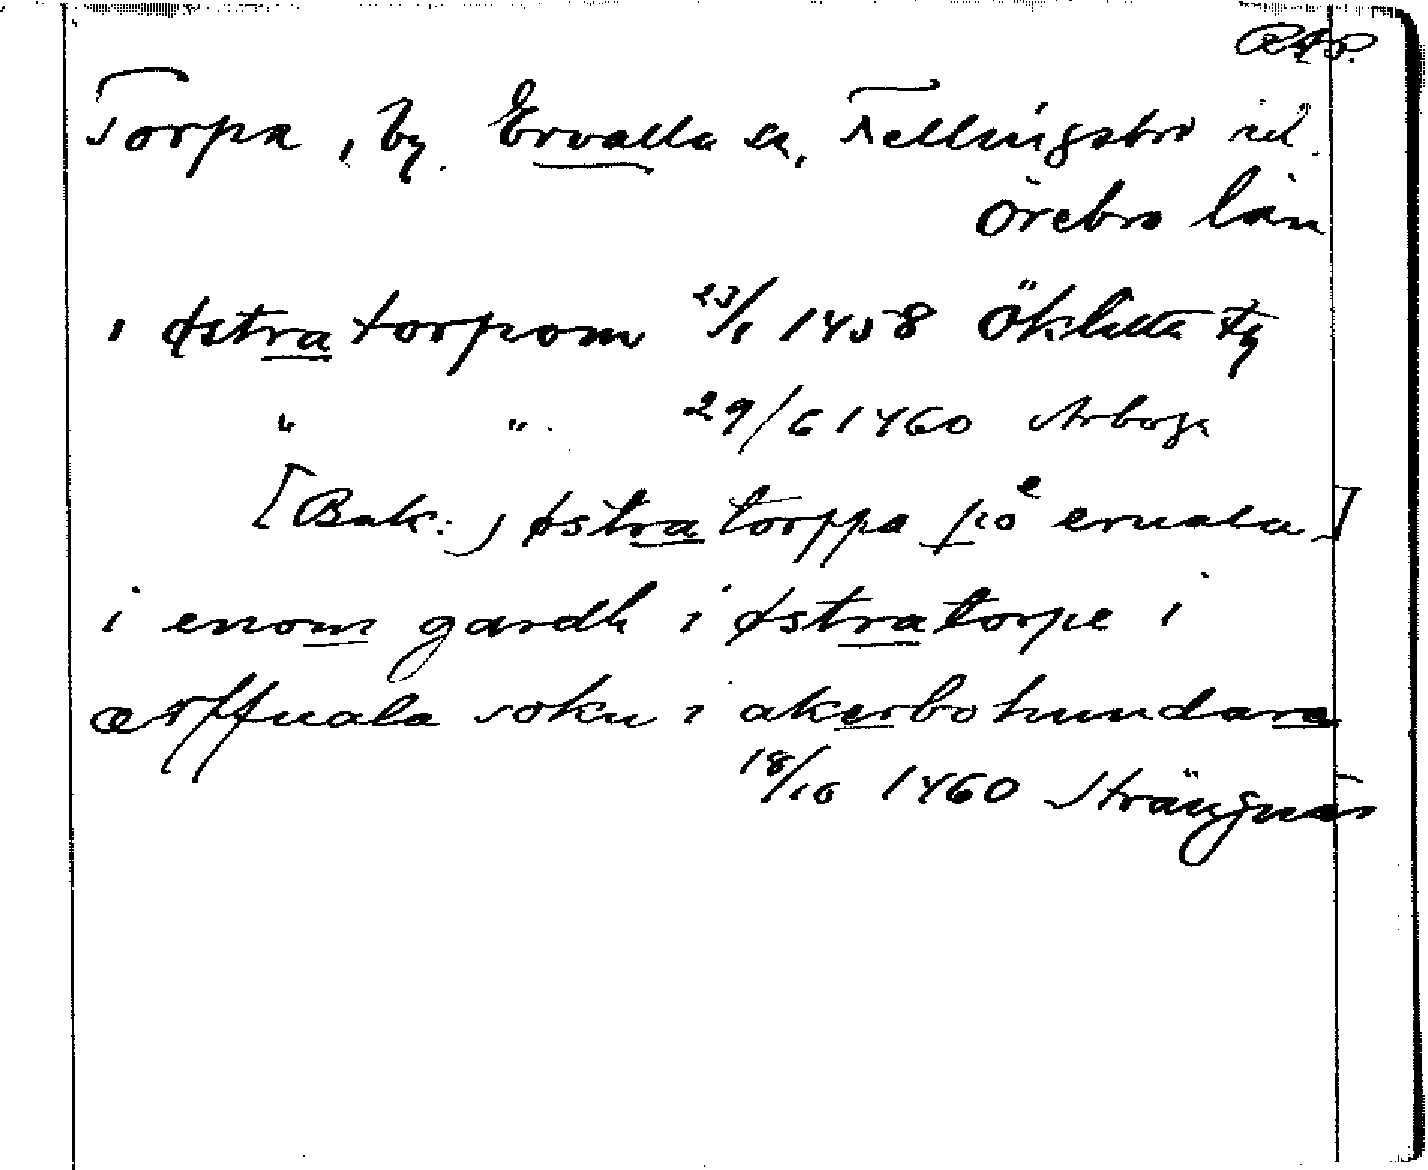 RAP.
Torpa, by. Ervalla sn, Fellingsbro hd.
Örebro län
i østra torpom 23/1 1458 Öklitta tg
" " 29/6 1460 Arboga
[Bak: j østra torppa j eruala]
i enom gardh i østratorpe i
ærffuala sokn i akerbohundara
18/10 1460 Strängnäs